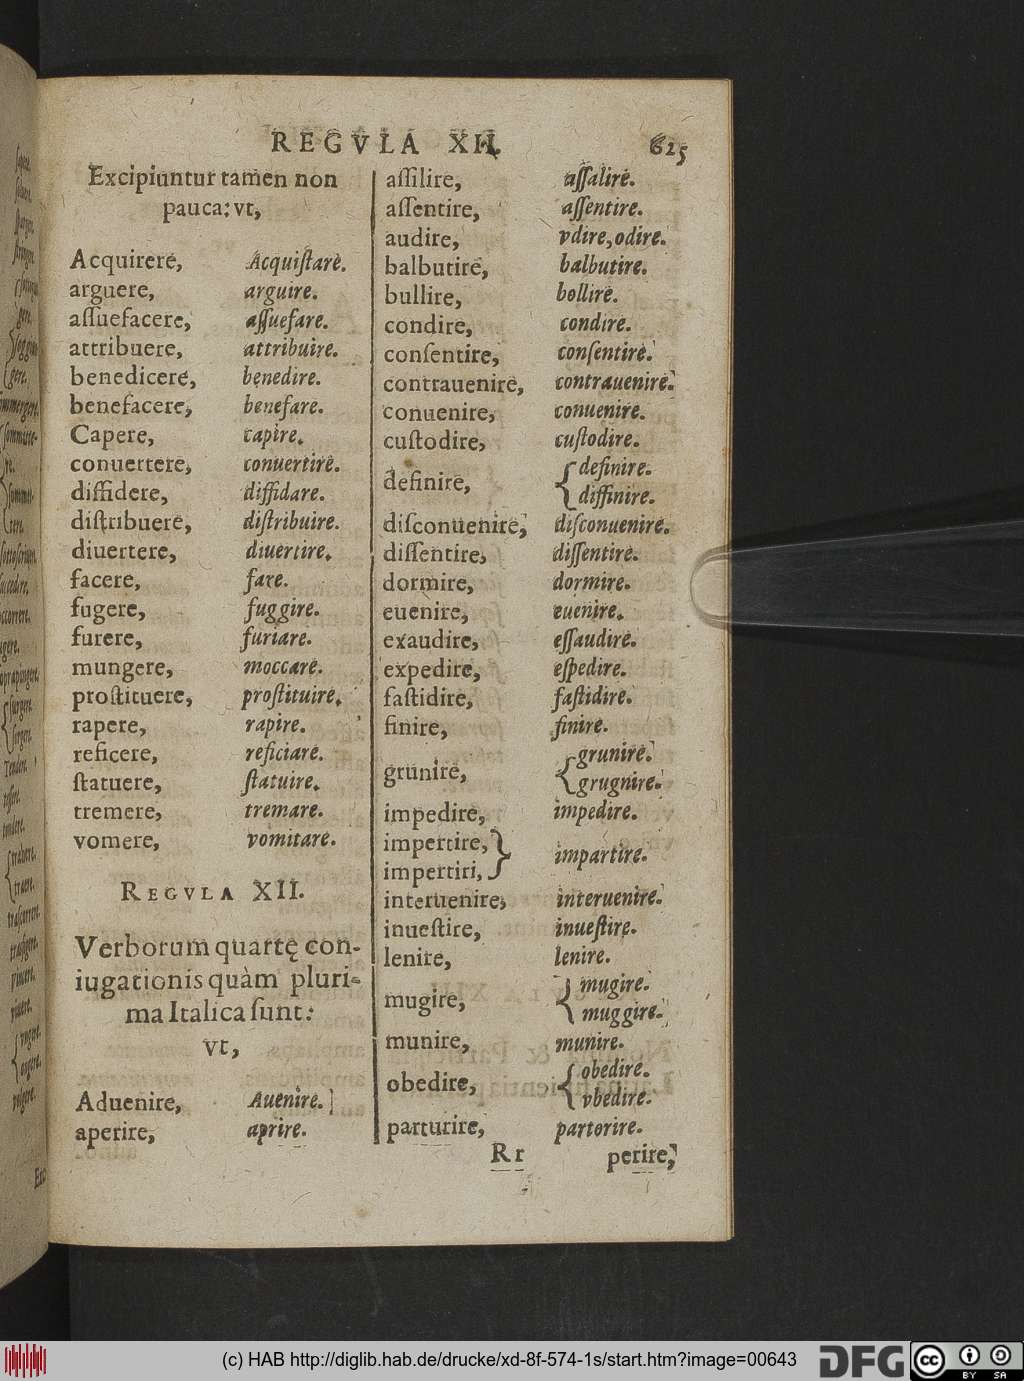 REGVLA XII. 625
Excipiuntur tamen non
pauca: vt,
Acquirere, Acquiſtare.
arguere, arguire.
aſſuefacere, aſſuefare.
attribuere, attribuire.
benedicere, benedire.
benefacere, benefare.
Capere, capire.
conuertere, conuertire.
diffidere, diffidare.
diſtribuere, diſtribuire.
diuertere, diuertire.
facere, fare.
fugere, fuggire.
furere, furiare.
mungere, moccare.
proſtituere, proſtituire.
rapere, rapire.
reficere, reficiare.
ſtatuere, ſtatuire.
tremere, tremare.
vomere, vomitare.
REGVLA XII.
Verborum quartę con-
iugationis quàm pluri-
ma Italica ſunt:
vt,
Aduenire, Auenire.
aperire, aprire.
aſſilire, aſſalire.
aſſentire, aſſentire.
audire, vdire, odire.
balbutire, balbutire.
bullire, bollire.
condire, condire.
conſentire, conſentire.
contrauenire, contrauenire.
conuenire, conuenire.
cuſtodire, cuſtodire.
definire, { definire.
diffinire.
diſconuenire, diſconuenire.
diſſentire, diſſentire.
dormire, dormire.
euenire, euenire.
exaudire, eſſaudire.
expedire, eſpedire.
faſtidire, faſtidire.
finire, finire.
grunire, { grunire.
grugnire.
impedire, impedire.
impertire, }
impertiri, impartire.
interuenire, interuenire.
inueſtire, inueſtire.
lenire, lenire.
mugire, { mugire.
muggire.
munire, munire.
obedire, { obedire.
vbedire.
parturire, partorire.
Rr perire,
(c) HAB http://diglib.hab.de/drucke/xd-8f-574-1s/start.htm?image=00643
DFG
cc BY SA